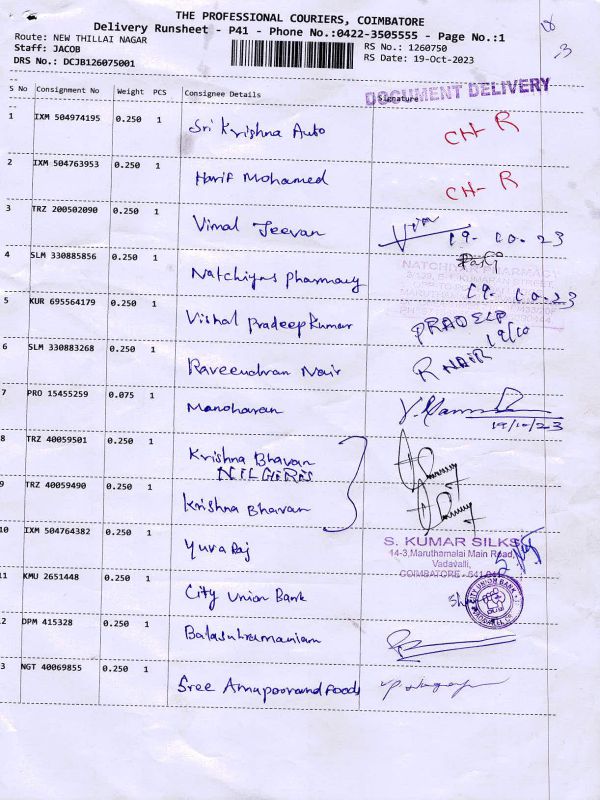 THE PROFESSIONAL COURIERS, COIMBATORE
Delivery Runsheet - P41 - Phone No.:0422-3505555 - Page No.:1
Route: NEW THILLAI NAGAR
Staff: JACOB RS No.: 1260750
DRS No.: DCJB126075001 RS Date: 19-Oct-2023
DOCUMENT DELIVERY
S No Consignment No Weight PCS Consignee Details Signature
1 IXM 504974195 0.250 1 Sri Krishna Auto CH-R
2 IXM 504763953 0.250 1 Harif Mohamed CH-R
3 TRZ 200502090 0.250 1 Vimal Jeevan 19.10.23
4 SLM 330885856 0.250 1 Natchiyas pharmacy
NATCHIYAS PHARMACY
19.10.23
5 KUR 695564179 0.250 1 Vishal Pradeep Kumar PRADEEP
19/10
6 SLM 330883268 0.250 1 Raveendran Nair R NAIR
7 PRO 15455259 0.075 1 Manoharan
19/10/23
8 TRZ 40059501 0.250 1 Krishna Bhavan
NILGIRIS
9 TRZ 40059490 0.250 1 Krishna Bhavan
10 IXM 504764382 0.250 1 Yuvaraj
S. KUMAR SILKS
14-3,Maruthamalai Main Road,
Vadavalli,
COIMBATORE - 641 041
11 KMU 2651448 0.250 1 City Union Bank
CITY UNION BANK
2 DPM 415328 0.250 1 Balasubramaniam
3 NGT 40069855 0.250 1 Sree Annapoorna Foods